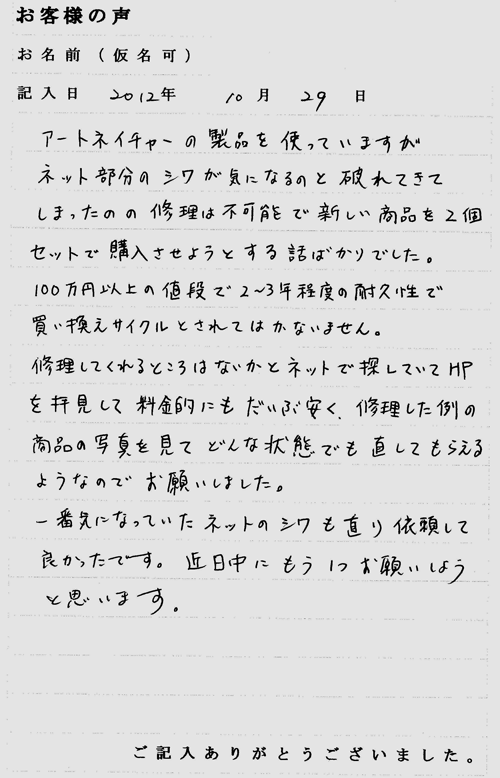 お客様の声
お名前（仮名可）
記入日 2012年 10月 29日
アートネイチャーの製品を使っていますが
ネット部分のシワが気になるのと破れてきて
しまったのの修理は不可能で新しい商品を2個
セットで購入させようとする話ばかりでした。
100万円以上の値段で2〜3年程度の耐久性で
買い換えサイクルとされてはかないません。
修理してくれるところはないかとネットで探していてHP
を拝見して料金的にもだいぶ安く、修理した例の
商品の写真を見てどんな状態でも直してもらえる
ようなのでお願いしました。
一番気になっていたネットのシワも直り依頼して
良かったです。近日中にもう1つお願いしよう
と思います。
ご記入ありがとうございました。